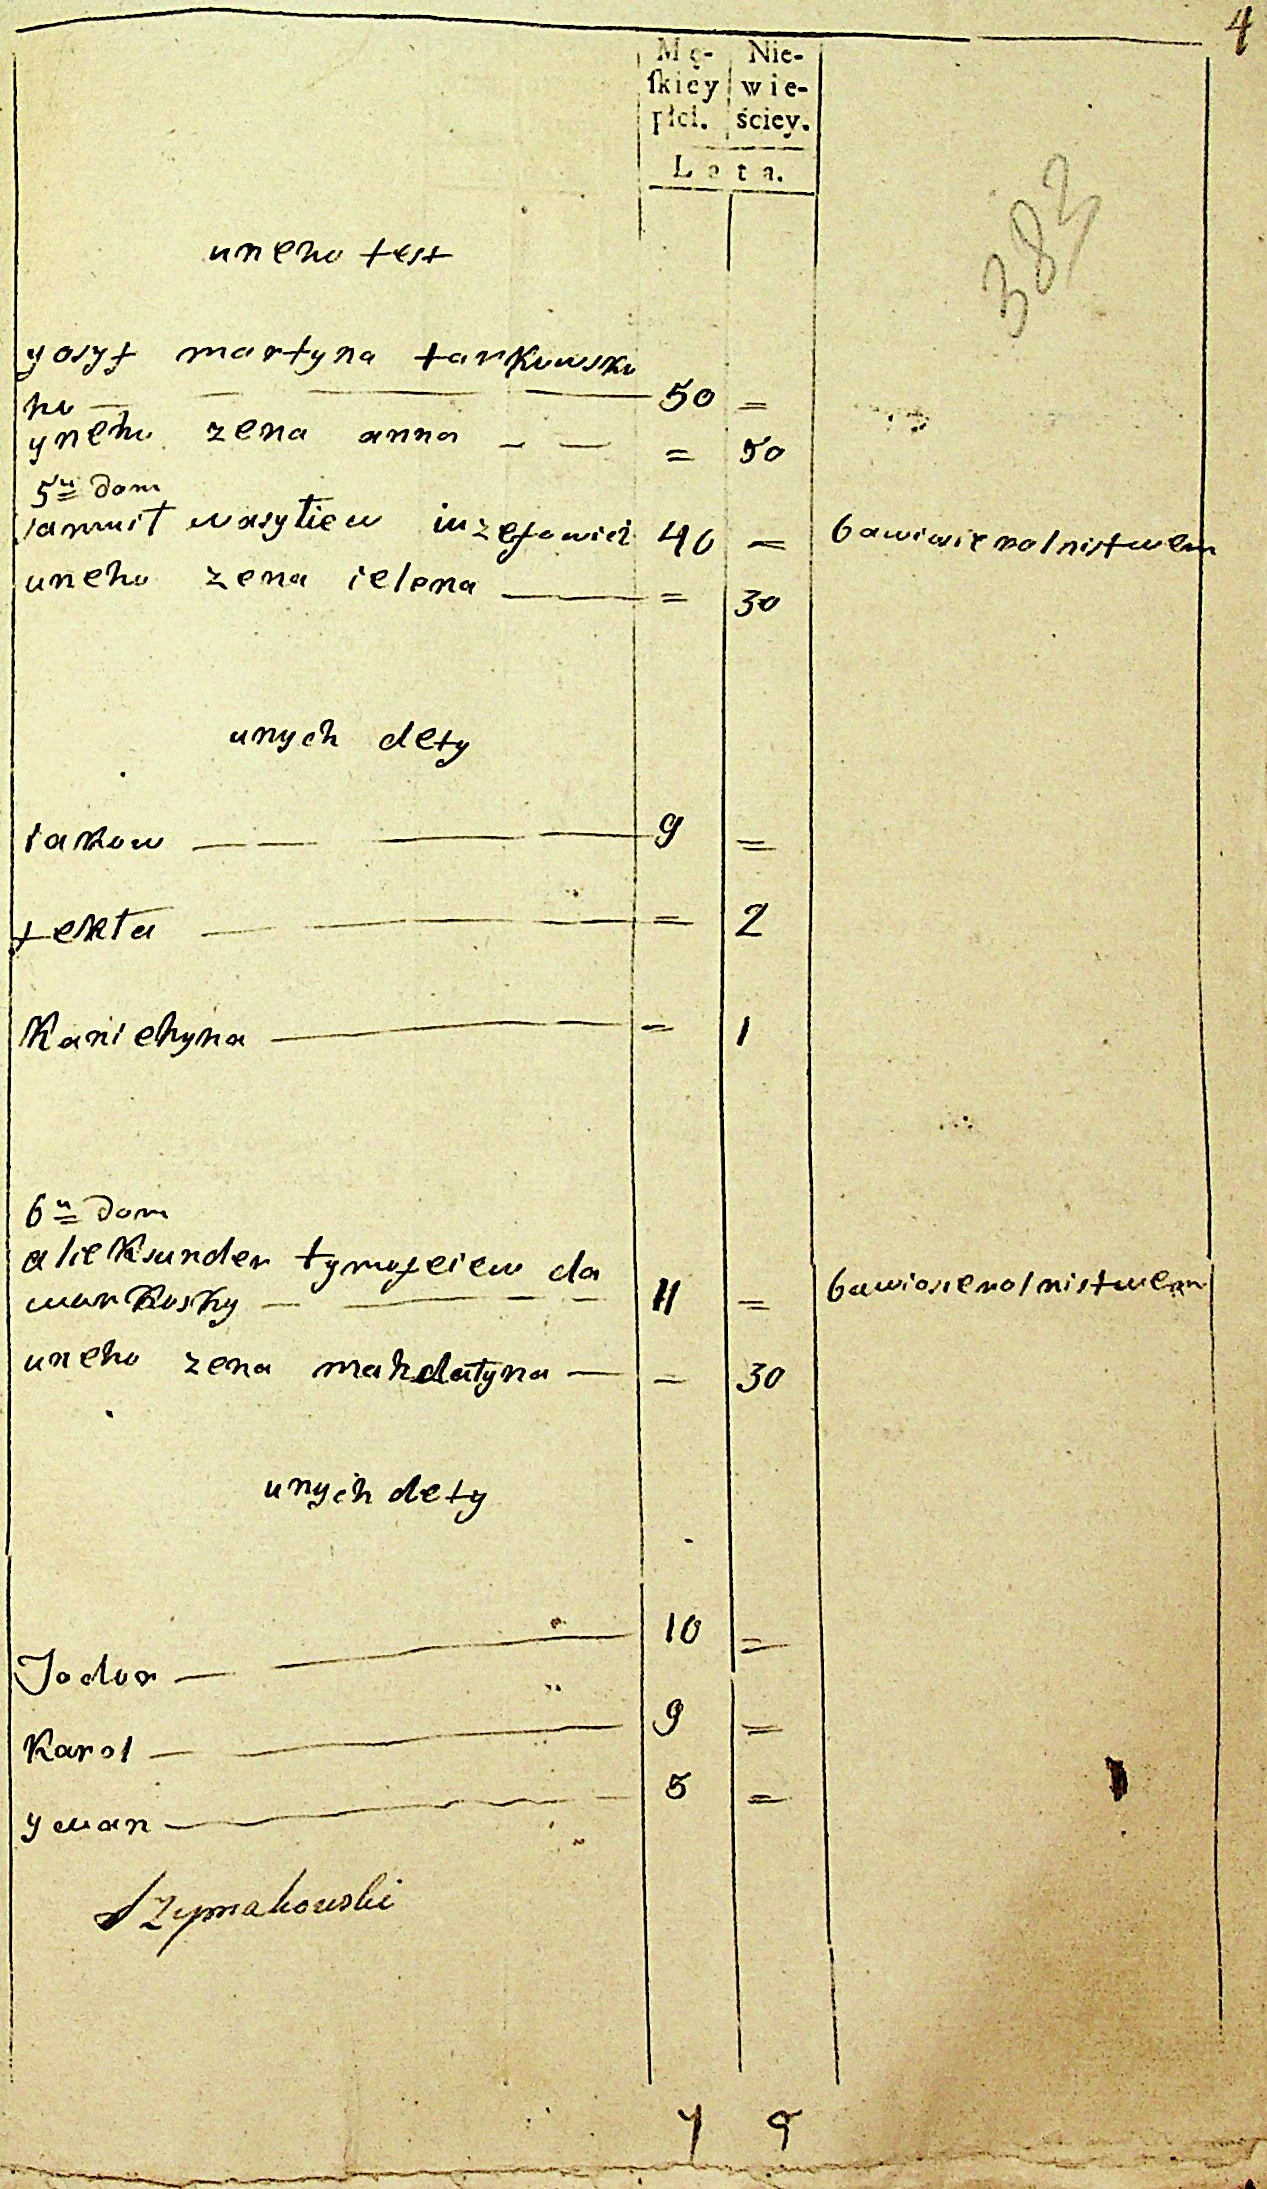 4
Mę- Nie-
skiey wie-
płci. ściey.
Lata.
383
uneho test
yosyf martyna tarkowsko
ho — 50 =
yneho zena anna — = 50
5u dom
samuił wasyliew iuzefowicz 40 = bawiwsie rolnistwem
uneho zena ielena — = 30
unych dety
iakow — 9 =
tekła — = 2
Kaniehyna — = 1
6u dom
alieksander tymofeiew da
warkosky — 41 = bawiosie rolnistwem
uneho zena mahdałyna — = 30
unych dety
Jodor — 10 =
Karol — 9 =
ywan — 5 =
Szymakowski
7 5